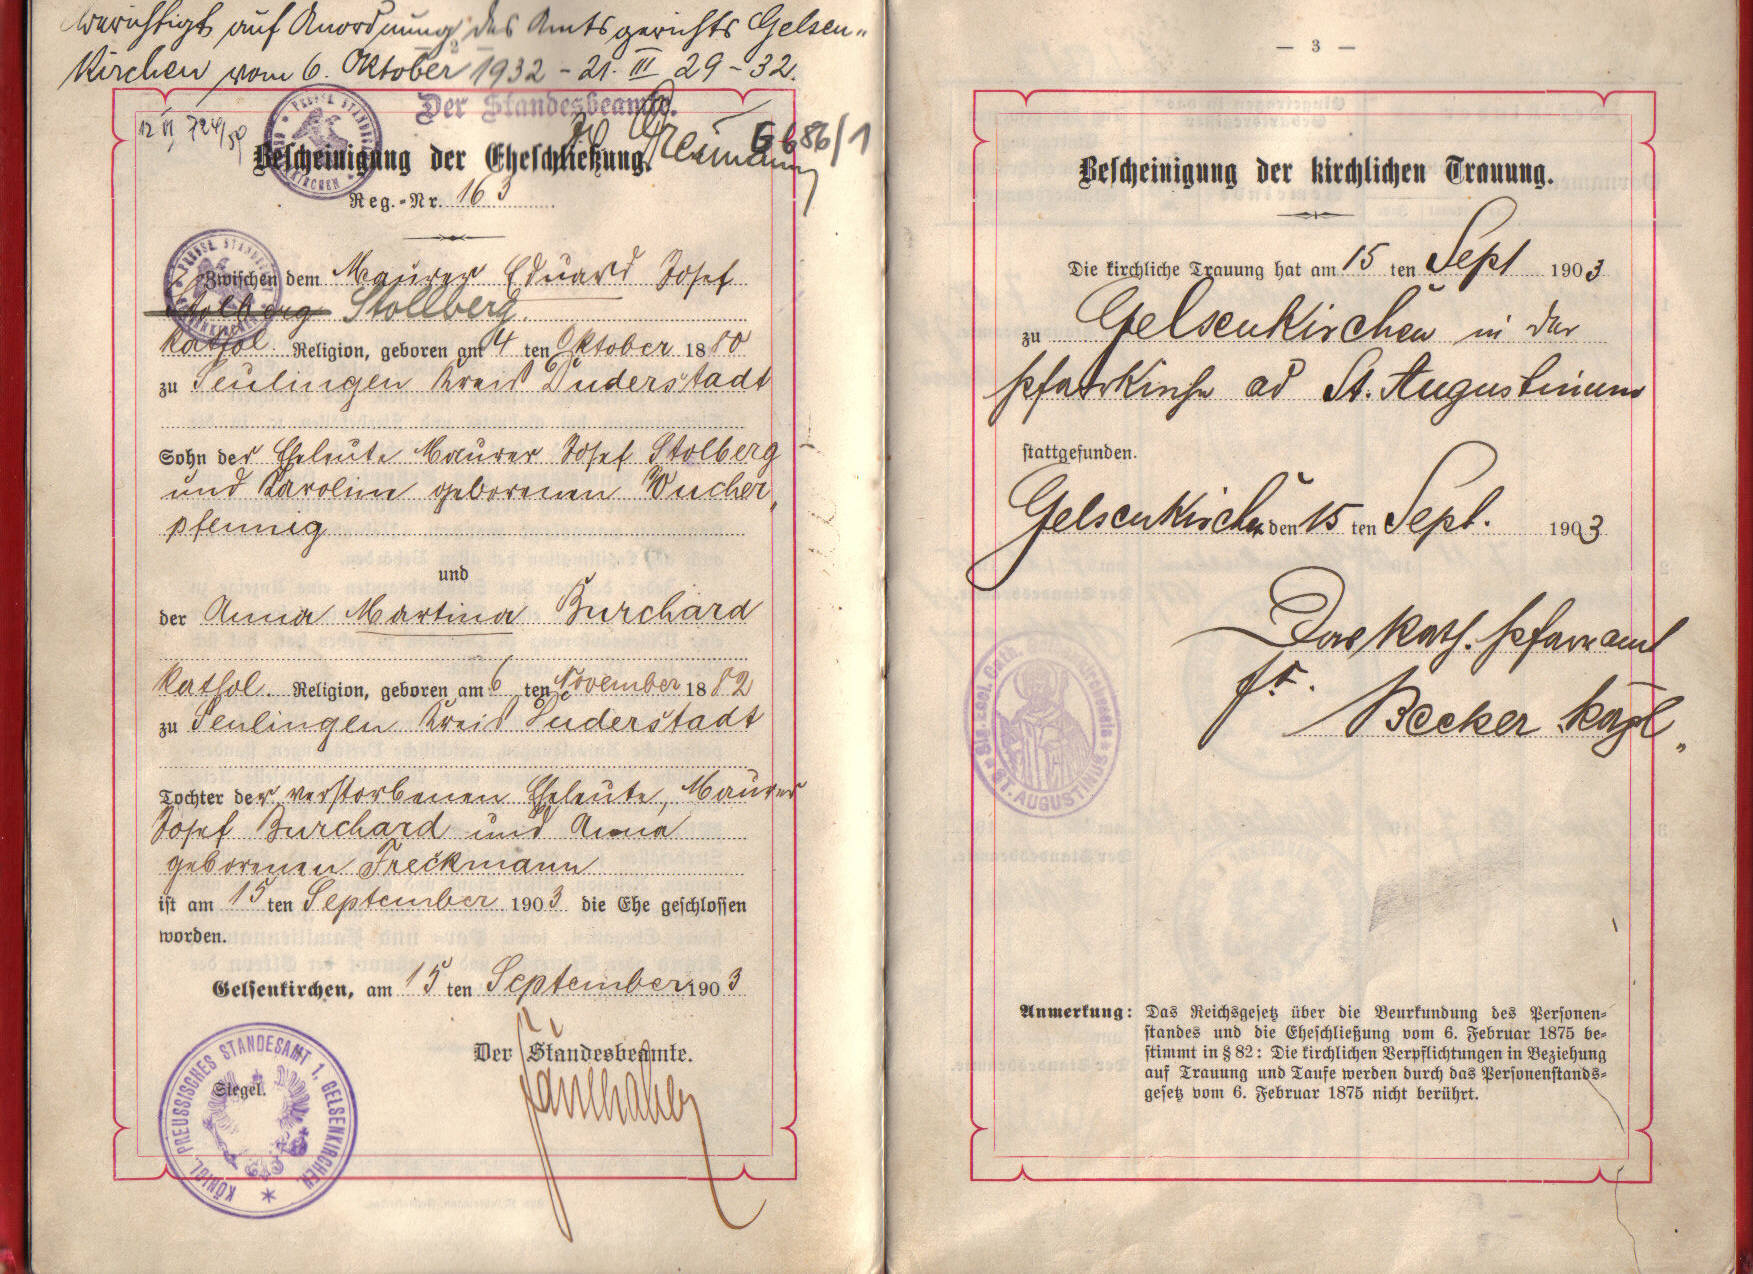 Berichtigt auf Anordnung des Amtsgerichts Gelsen-
kirchen vom 6. Oktober 1932 - 21. III 29-32.
Der Standesbeamte.
G 686/1
Bescheinigung der Eheschließung.
Reg.-Nr. 163
Zwischen dem Maurer Eduard Josef
Stolberg Stollberg.
kathol. Religion, geboren am 4 ten Oktober 1880
zu Seulingen Kreis Duderstadt
Sohn der Eheleute Maurer Josef Stolberg
und Karoline geborenen Wucher-
pfennig
und
der Anna Martina Burchard
kathol. Religion, geboren am 6 ten November 1882
zu Seulingen Kreis Duderstadt
Tochter der verstorbenen Eheleute, Maurer
Josef Burchard und Anna
geborenen Freckmann
ist am 15 ten September 1903 die Ehe geschlossen
worden.
Gelsenkirchen, am 15 ten September 1903
Der Standesbeamte.
Siegel.
KÖNIGL. PREUSSISCHES STANDESAMT 1, GELSENKIRCHEN.
— 3 —
Bescheinigung der kirchlichen Trauung.
Die kirchliche Trauung hat am 15 ten Sept 1903
zu Gelsenkirchen in der
Pfarrkirche ad St. Augustinum
stattgefunden.
Gelsenkirchen den 15 ten Sept. 1903
Das kath. Pfarramt
Becker Kapl.
ST. AUGUSTINUS
Anmerkung: Das Reichsgesetz über die Beurkundung des Personen-
standes und die Eheschließung vom 6. Februar 1875 be-
stimmt in § 82: Die kirchlichen Verpflichtungen in Beziehung
auf Trauung und Taufe werden durch das Personenstands-
gesetz vom 6. Februar 1875 nicht berührt.